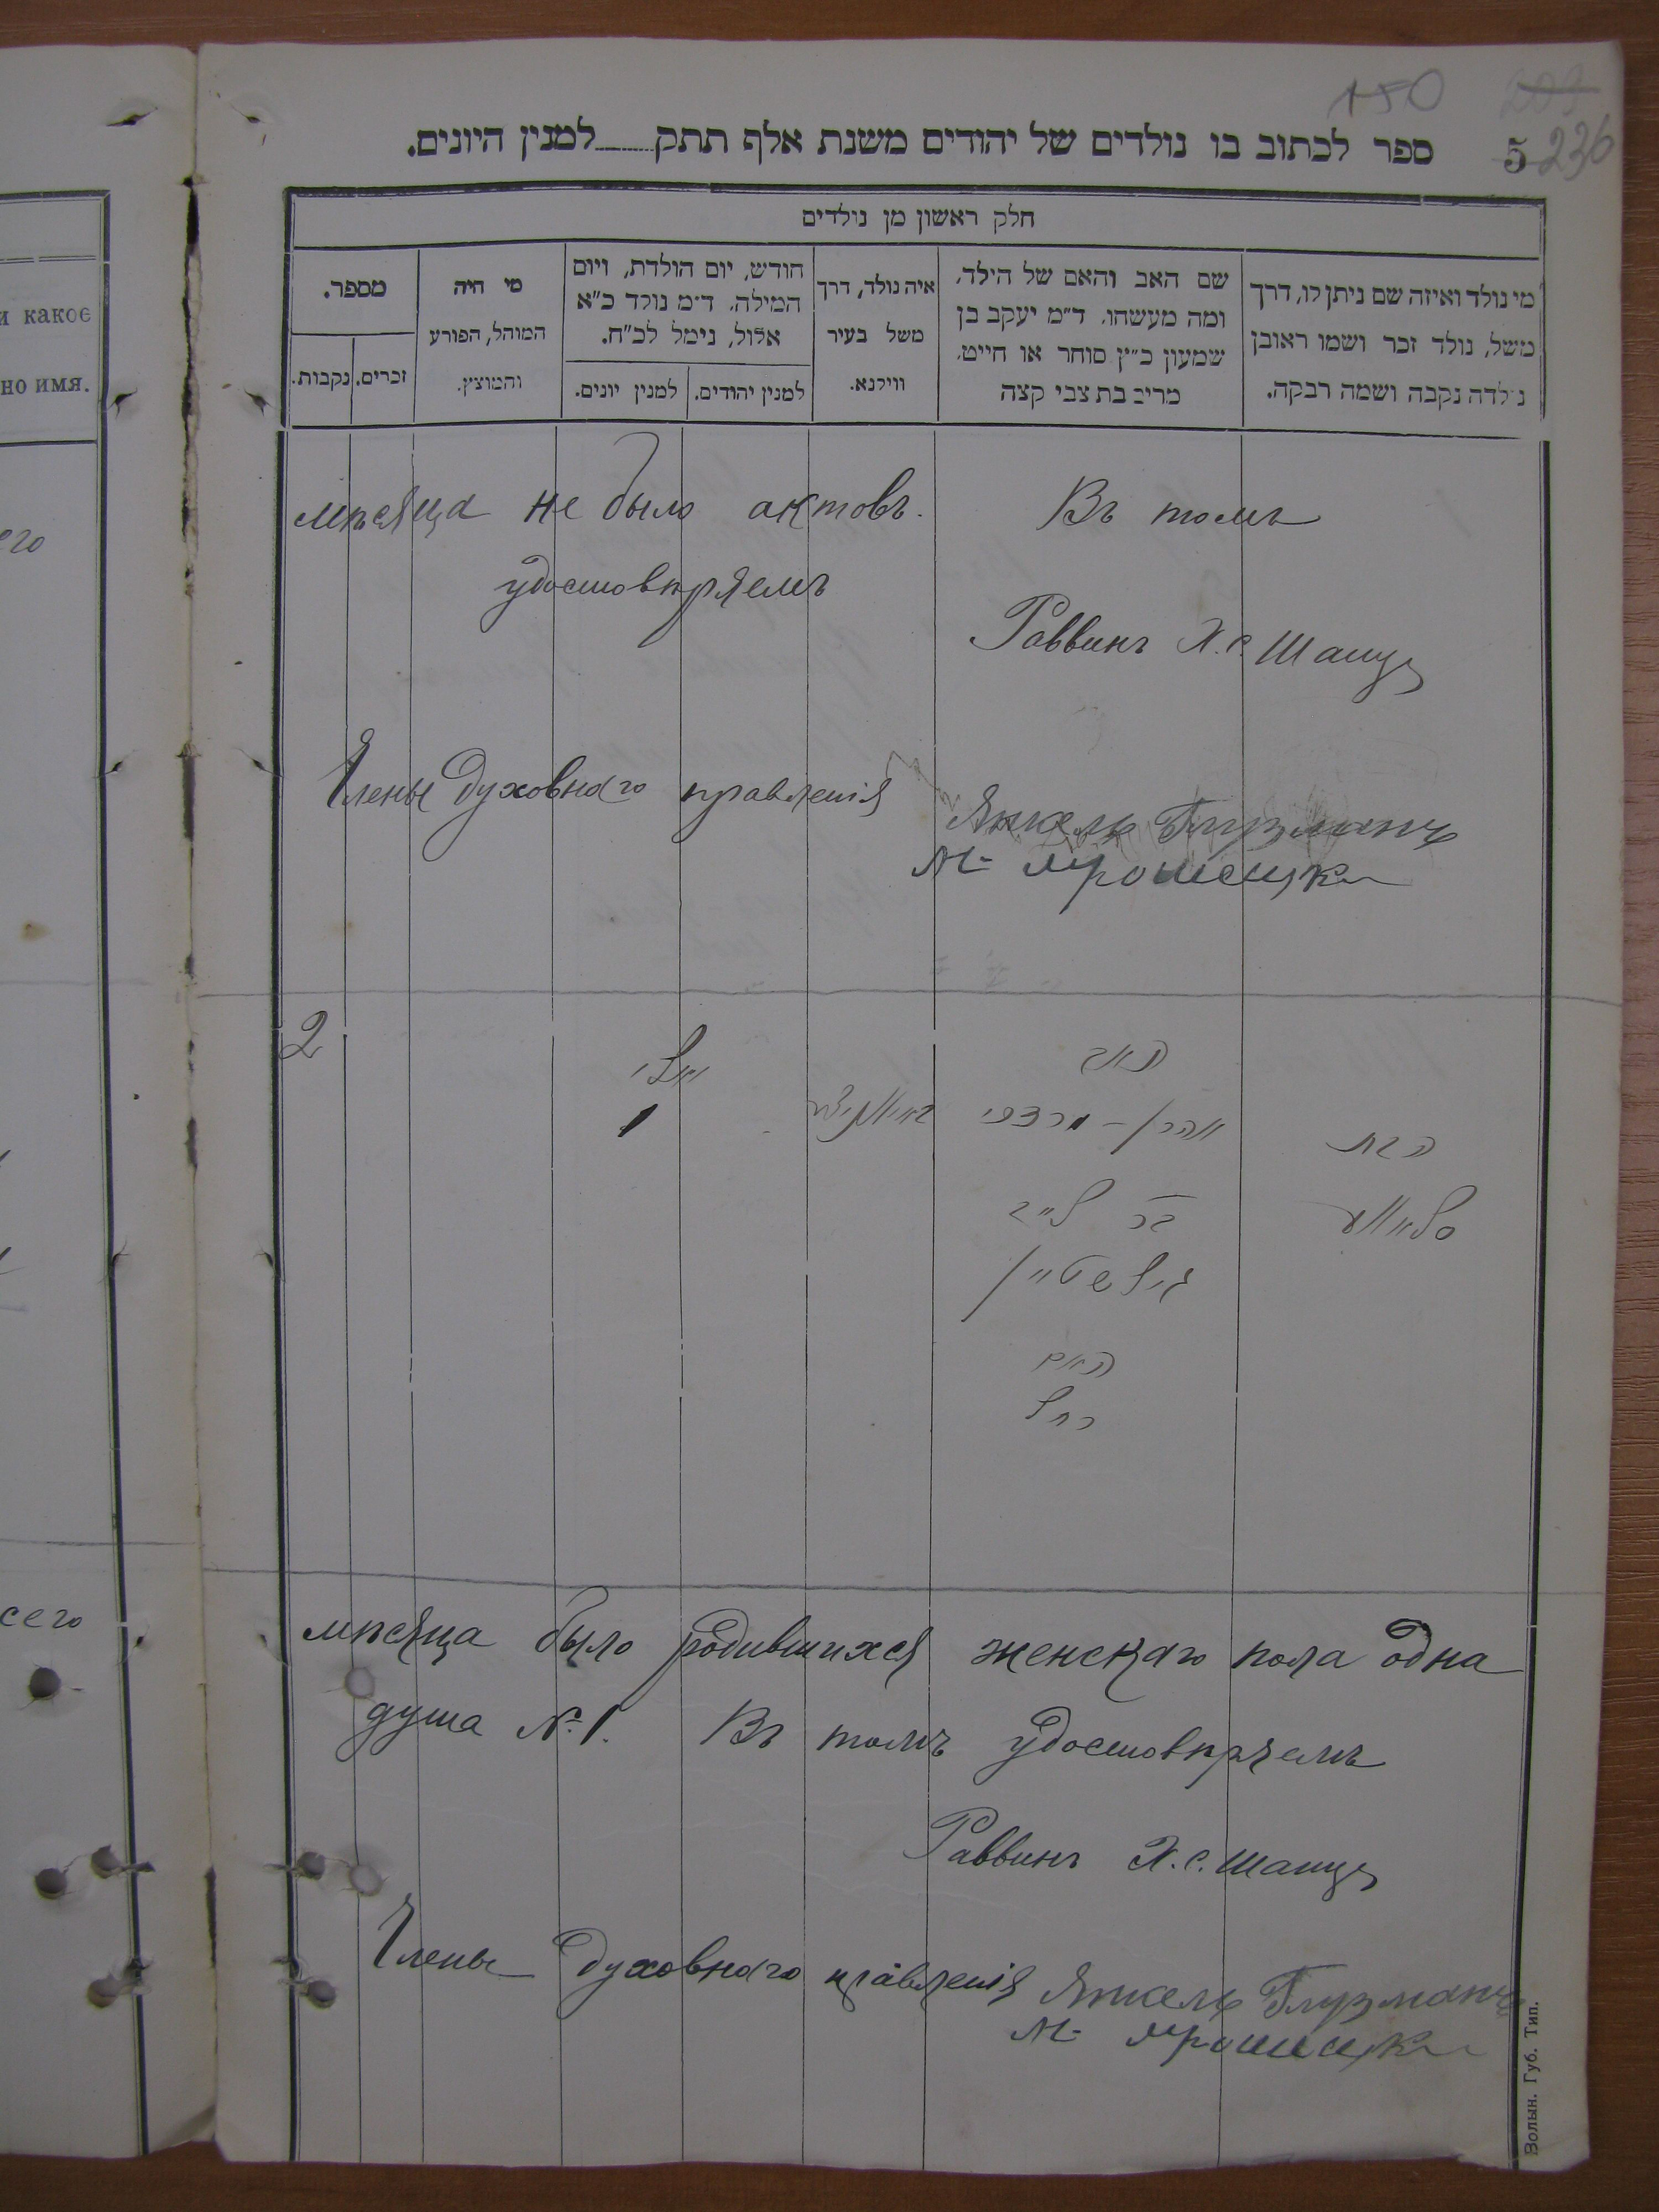 150 203
ספר לכתוב בו נולדים של יהודים משנת אלף תתק למנין היונים.
5 236
חלק ראשון מן נולדים
מי נולד ואיזה שם ניתן לו, דרך
משל, נולד זכר ושמו ראובן
נולדה נקבה ושמה רבקה.
שם האב והאם של הילד,
ומה מעשהו. ד״מ יעקב בן
שמעון כ״ץ סוחר או חייט,
מרים בת צבי קצה
איה נולד, דרך
משל בעיר
ווילנא.
חודש, יום הולדת, ויום
המילה. ד״מ נולד כ״א
אלול, נימל לכ״ח.
למנין יהודים.
למנין יונים.
מי היה
המוהל, הפורע
והמוצץ.
מספר.
זכרים.
נקבות.
и какое
но имя.
его
мѣсяца не было актовъ. Въ томъ
удостовѣряемъ
Раввинъ Х.С. Шапиро
Члены духовнаго правленія Янкель Глузманъ
2
יולי
1
הבת
האב
אהרן – מרדכי
בר לייב
גילשטיין
האם
רחל
сего
мѣсяца было родившихся женскаго пола одна
душа № 1. Въ томъ удостовѣряемъ
Раввинъ Х.С. Шапиро
Члены духовнаго правленія Янкель Глузманъ
Волын. Губ. Тип.